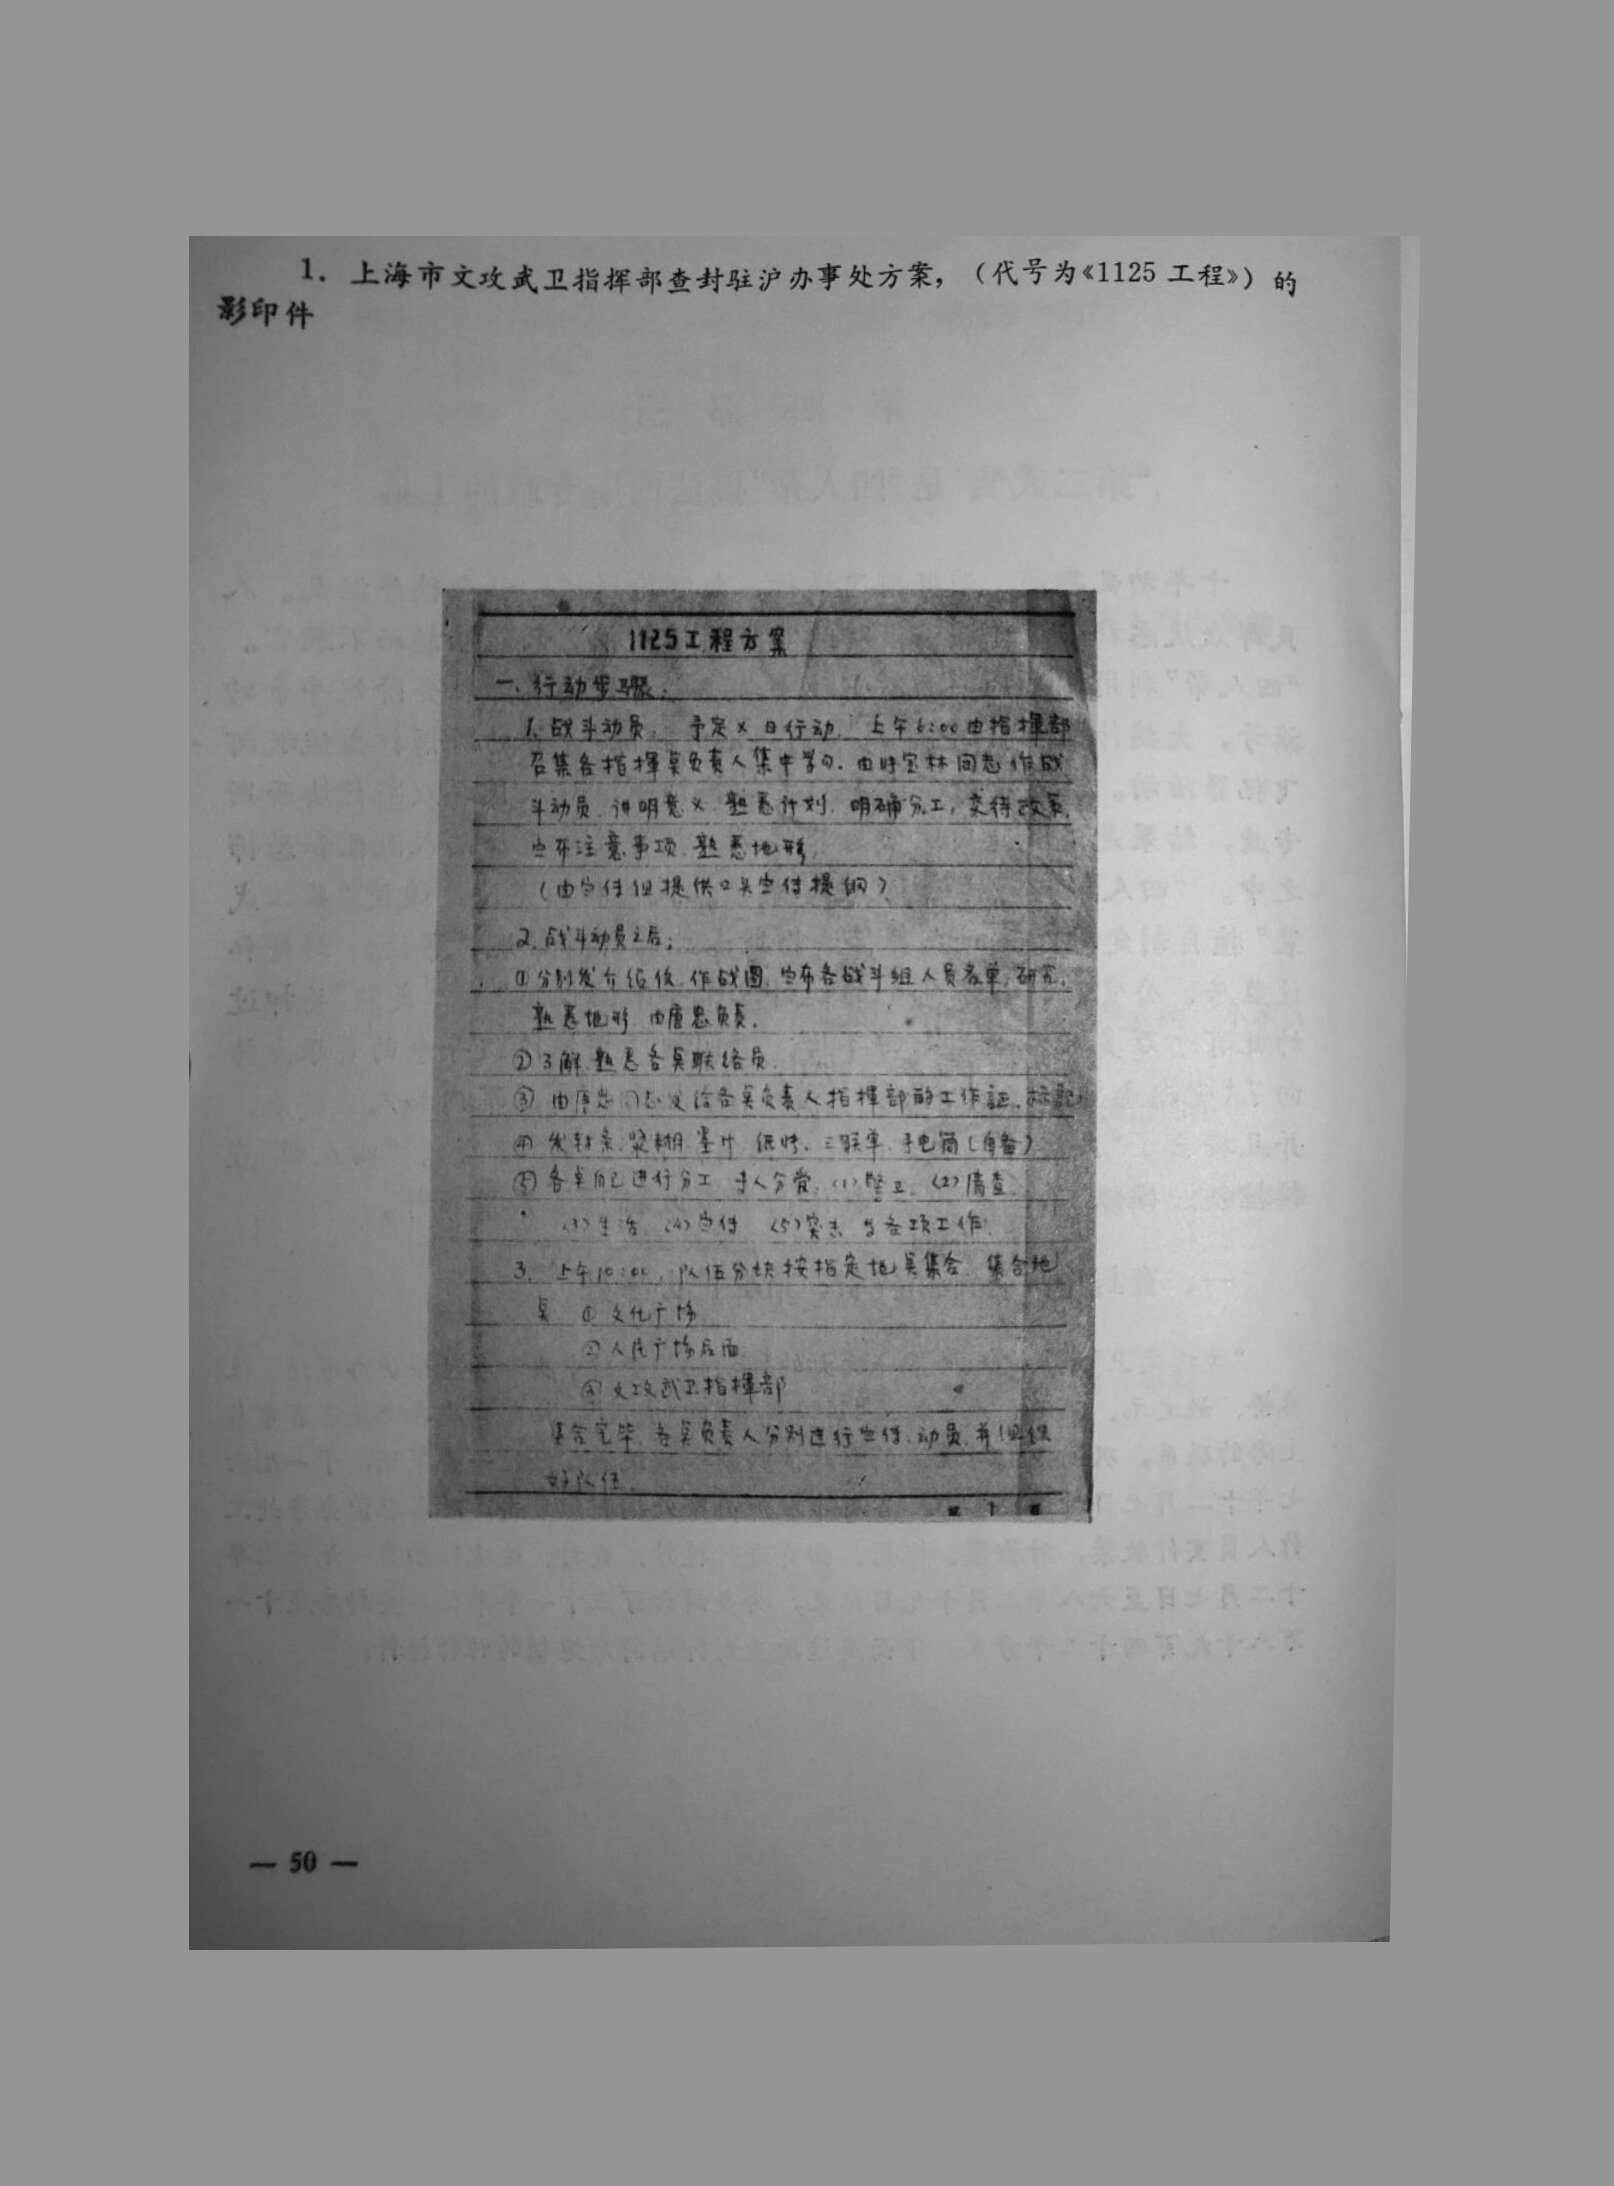 1．上海市文攻武卫指挥部查封驻沪办事处方案，（代号为《1125工程》）的
影印件
1125工程方案
一、行动步骤：
1、战斗动员： 予定×日行动，上午6:00由指揮部
召集各指揮点负责人集中学习，由 同志作战
斗动员，讲明意义，熟悉计划，明确分工，交待政策，
宣布注意事项，熟悉地形。
（由宣传组提供口头宣传提纲）
2、战斗动员之后；
①分别发介绍信，作战图，宣布各战斗组人员名单，研究，
熟悉地形，由唐忠负责。
②了解，熟悉各点联络员。
③由唐忠同志发给各点负责人指揮部的工作証、标記
④发封条、浆糊、墨汁、纸 、三联单、手电筒（自备）
⑤各点自己进行分工， 人分管，（1）警卫，（2）清查，
（3）生活，（4）宣传，（5）突击 各项工作。
3、上午10:00，队伍分块按指定地点集合，集合地
点 ①文化广场
②人民广场后面
③文攻武卫指揮部
集合完毕，各点负责人分别进行宣传、动员，并组织
好队伍。
1
— 50 —